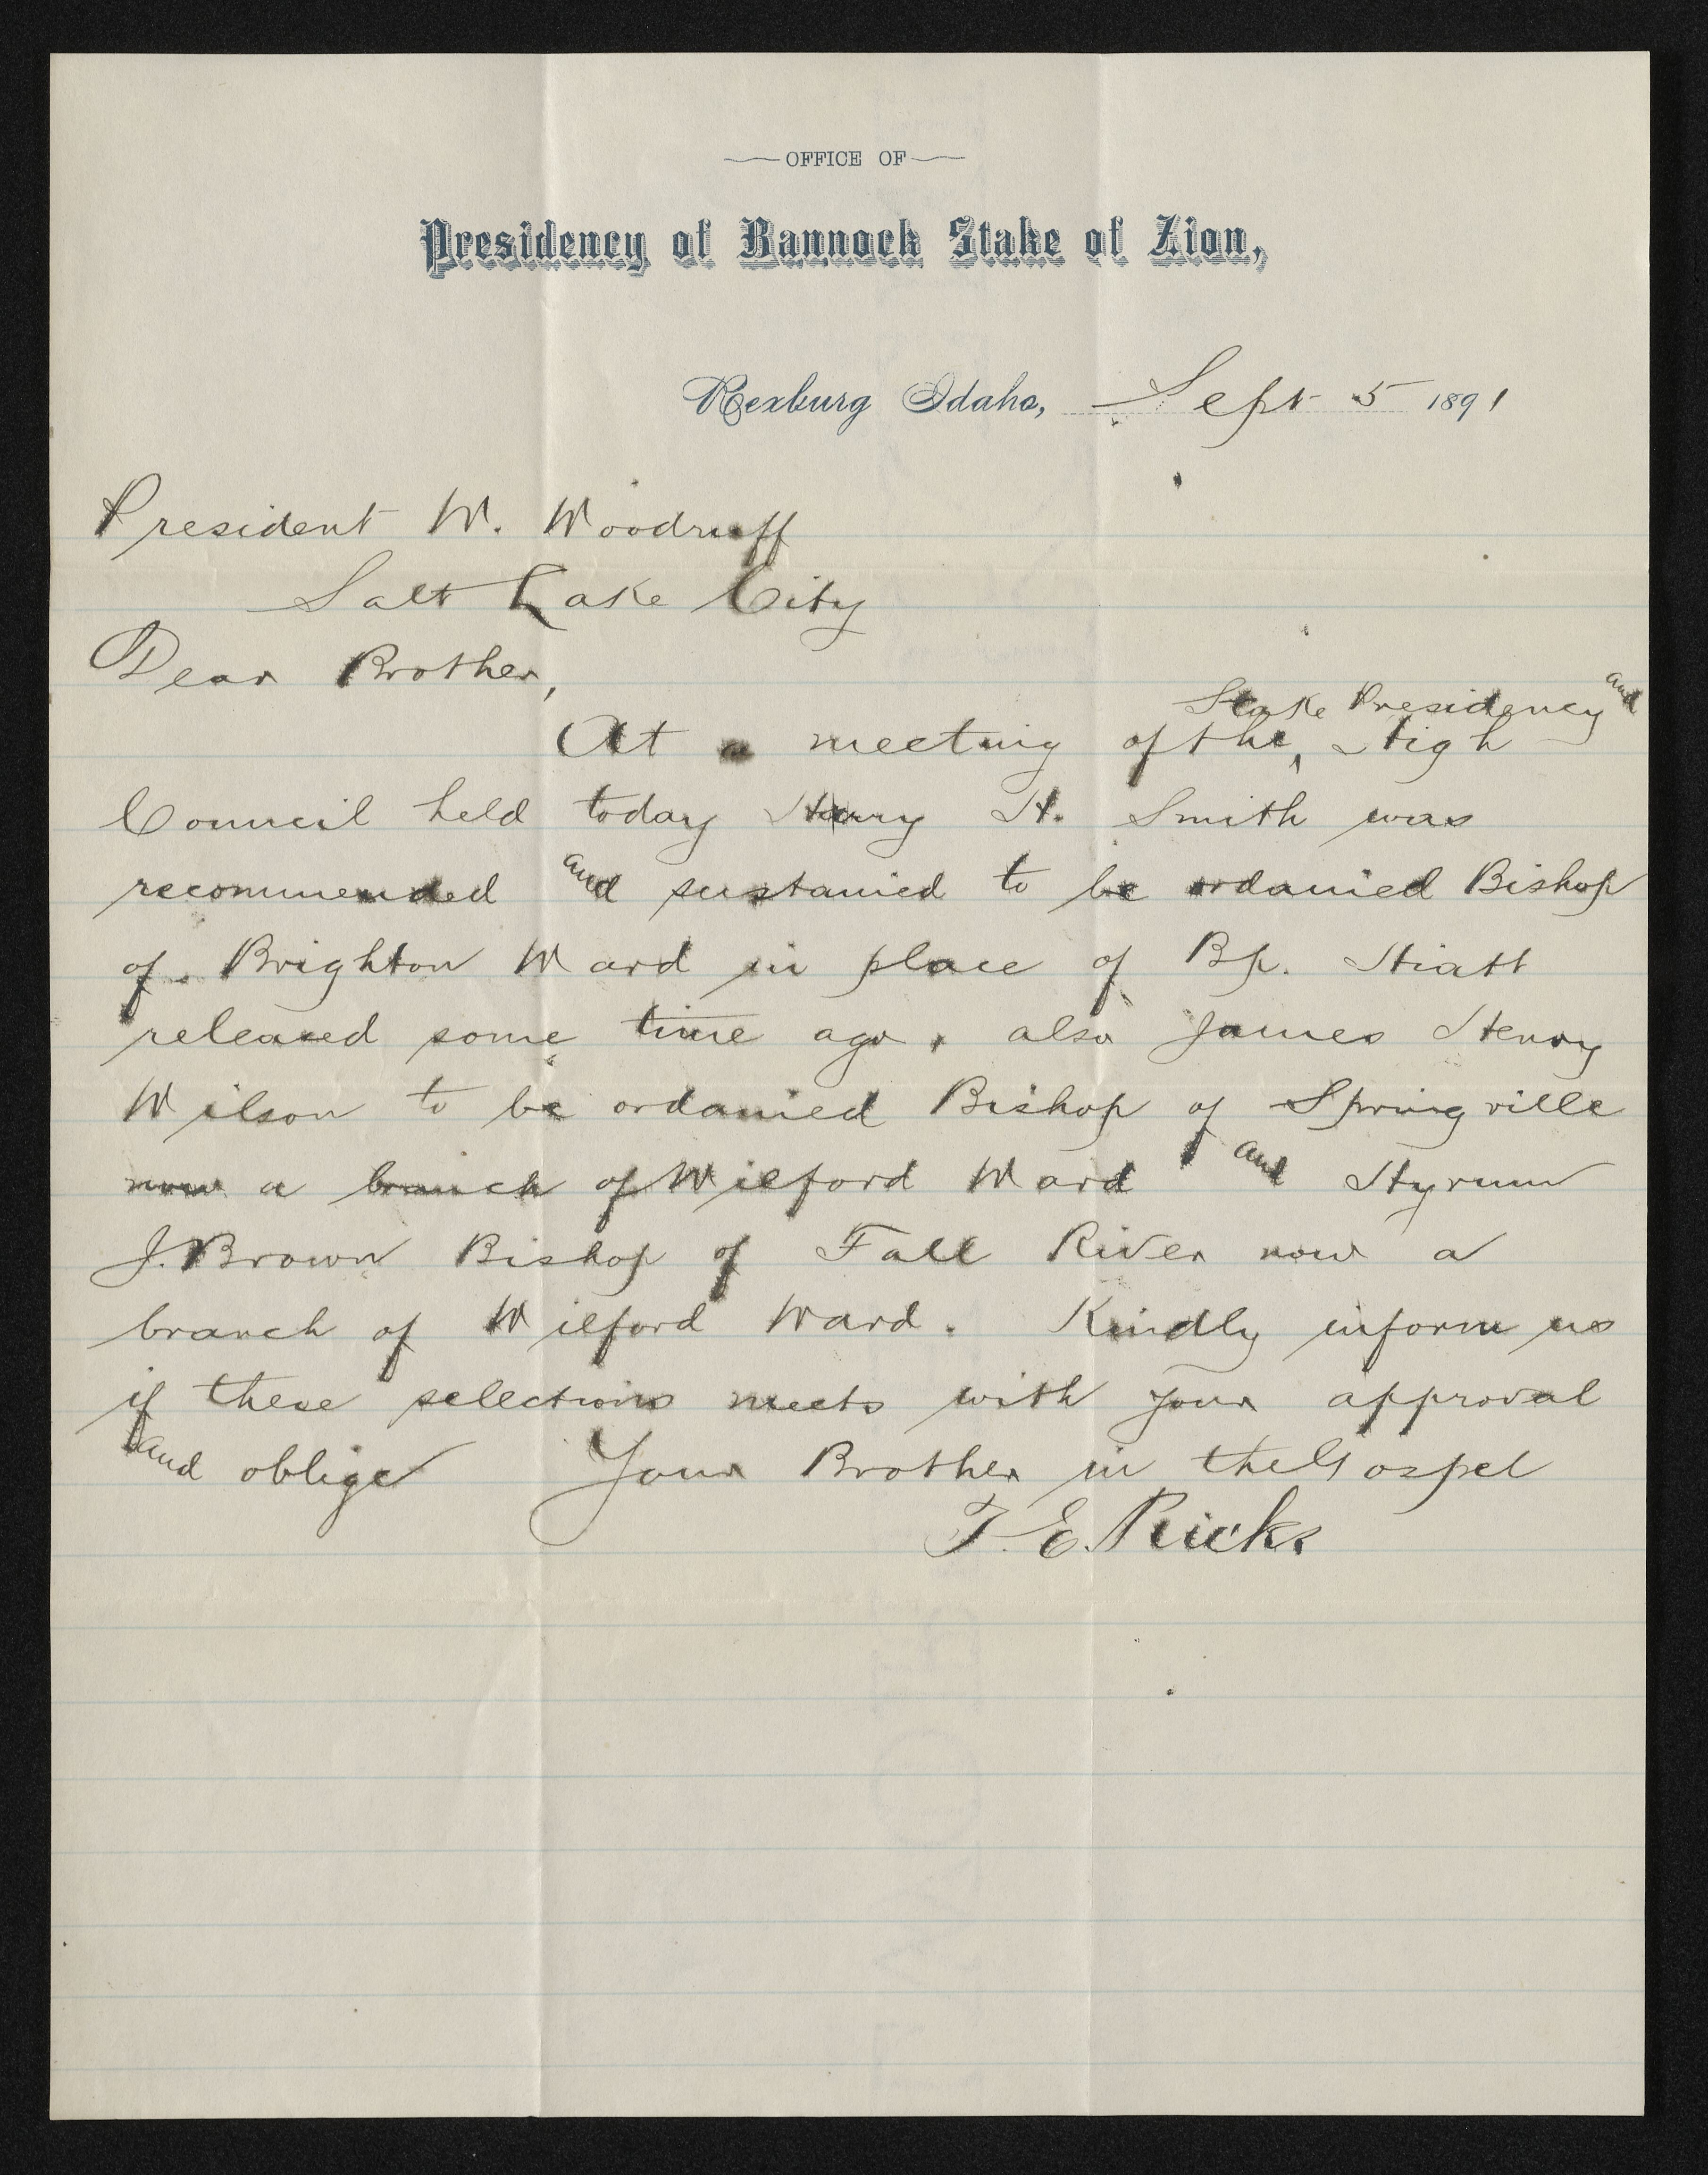 OFFICE OF
Presidency of Bannock Stake of Zion,
Rexburg Idaho, Sept 5 1891
President W. Woodruff
Salt Lake City
Dear Brother,
Stake Presidency and
At a meeting of the, High
Council held today Henry H. Smith was
recommended and sustained to be ordained Bishop
of Brighton Ward in place of Bp. Hiatt
released some time ago, also James Henry
Wilson to be ordained Bishop of Springville
now a branch of Wilford Ward and Hyrum
J. Brown Bishop of Fall River now a
branch of Wilford Ward. Kindly inform us
if these selections meets with your approval
and oblige Your Brother in the Gospel
T. E. Ricks